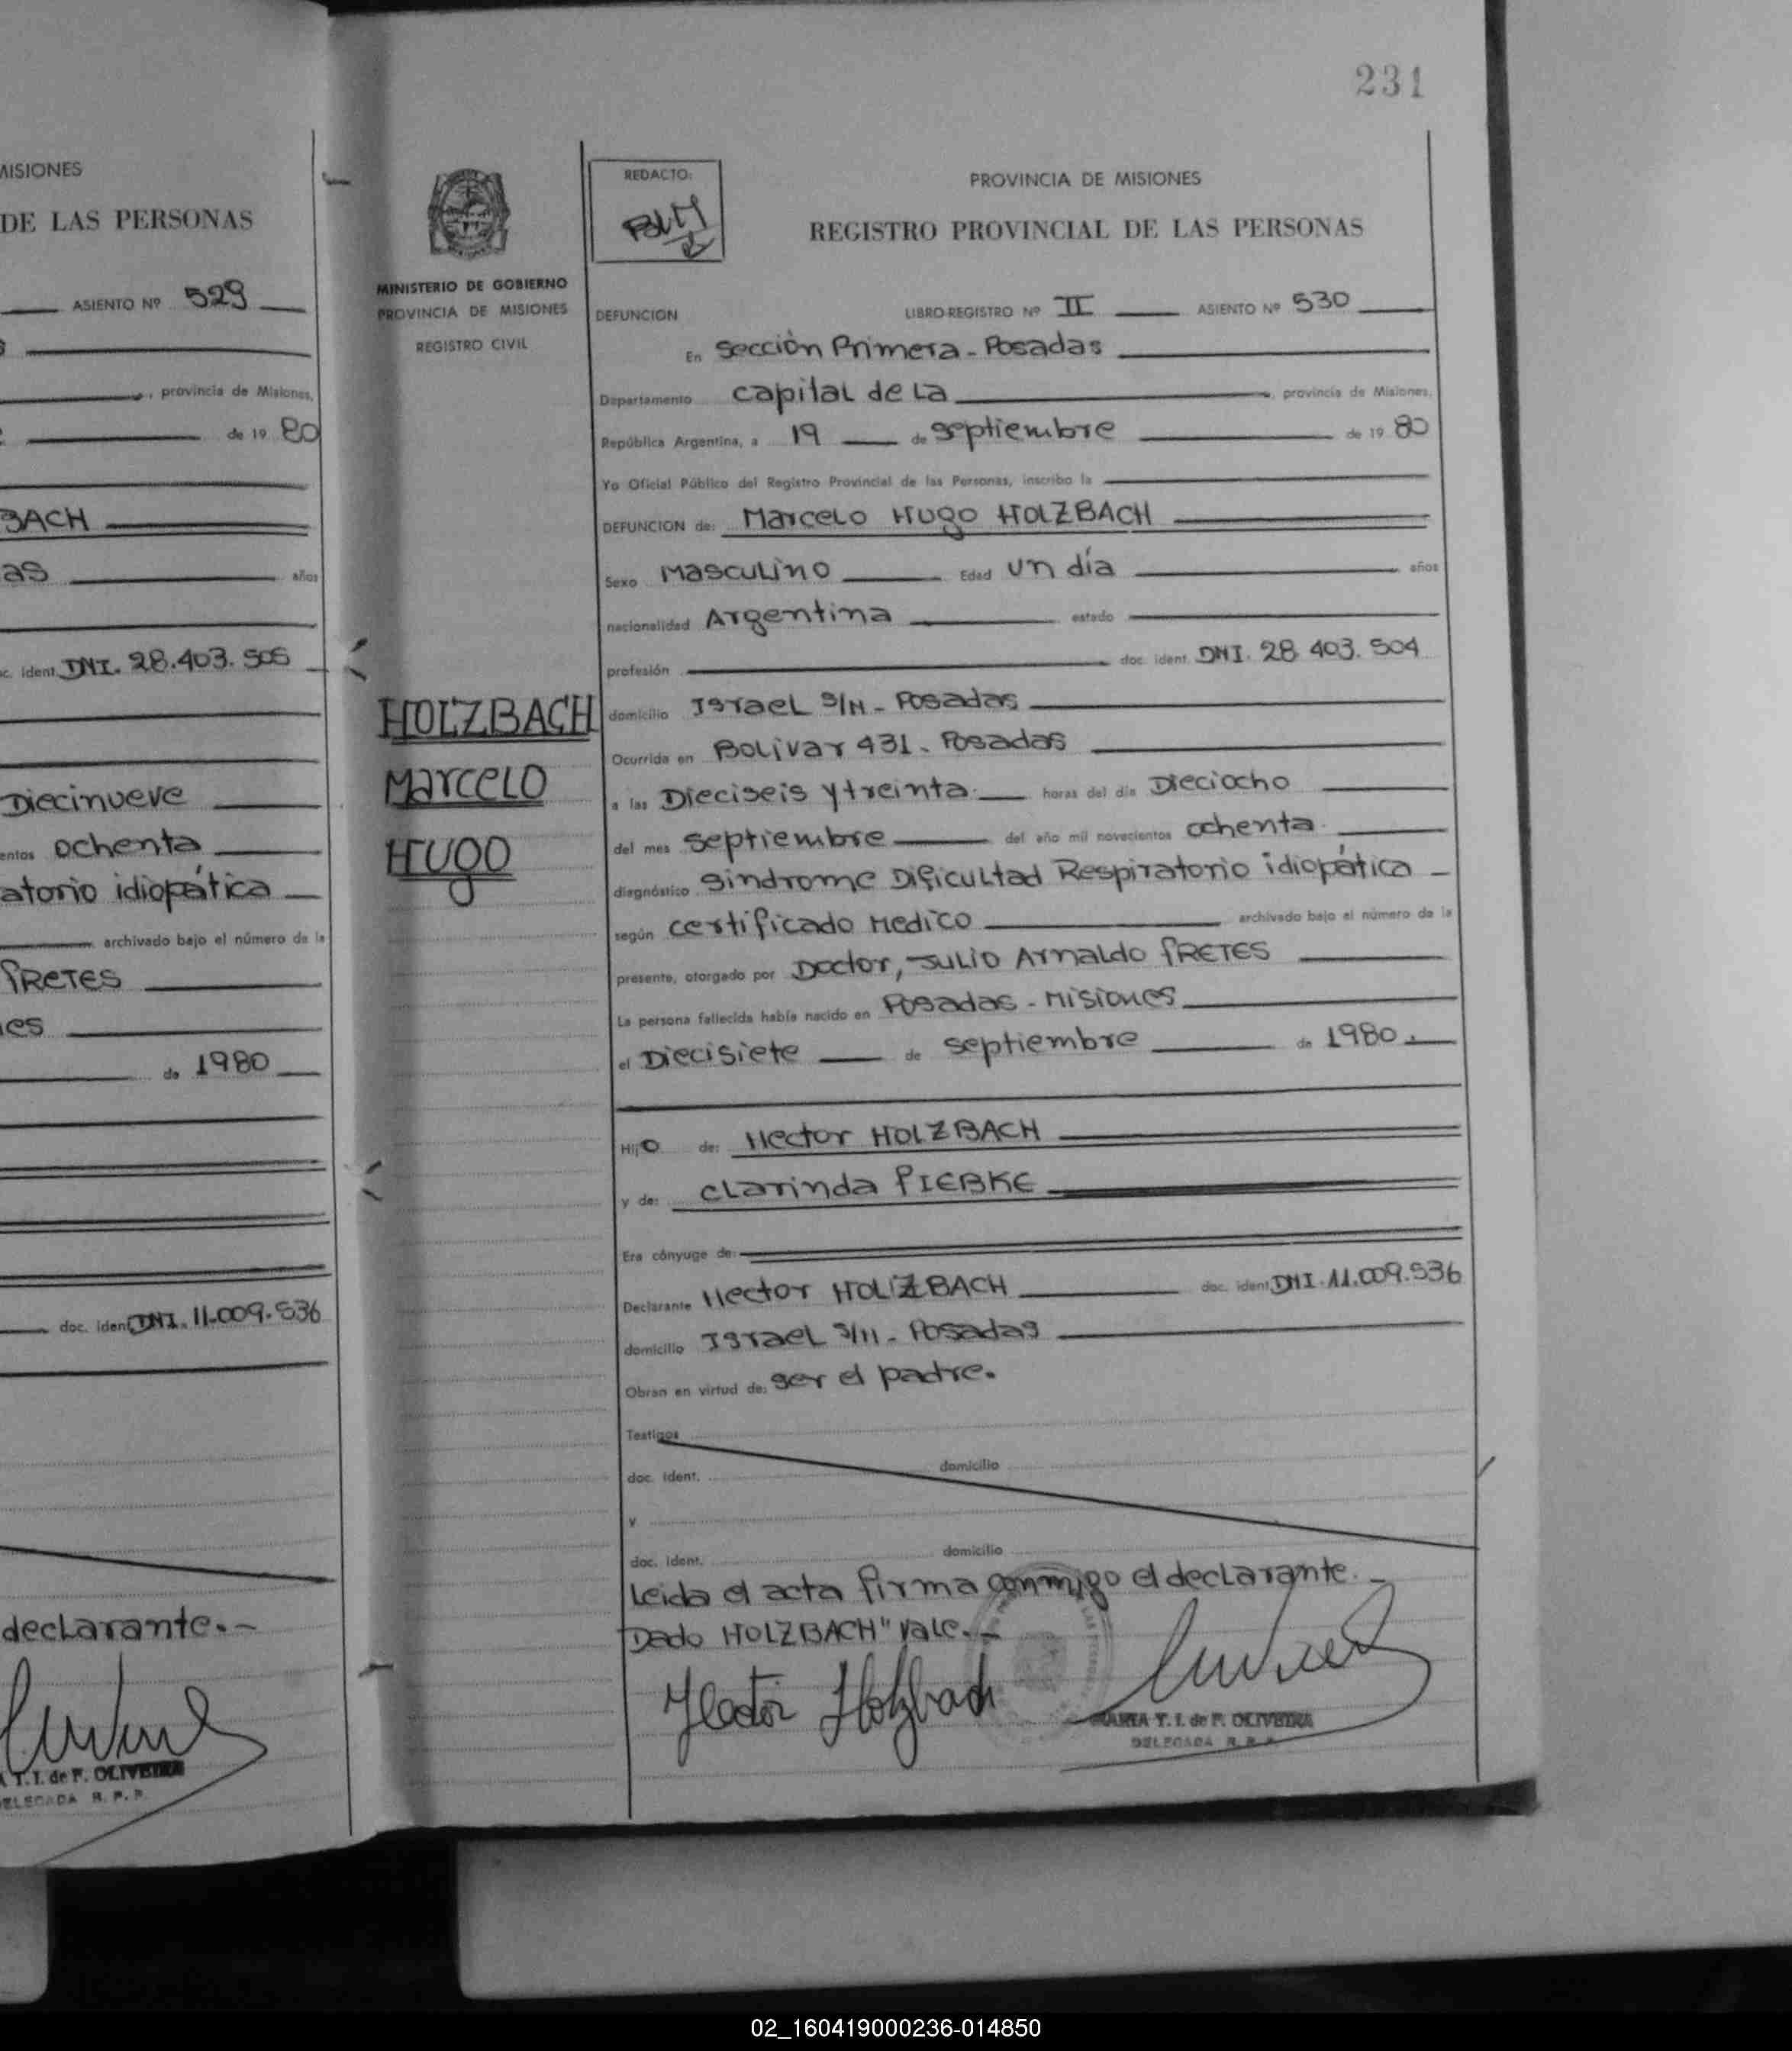 MISIONES
DE LAS PERSONAS
ASIENTO Nº 529
, provincia de Misiones,
de 19 80
BACH
as años
doc. ident. DNI. 28.403.505
Diecinueve
entos ochenta
atorio idiopática
archivado bajo el número de la
FRETES
nes
de 1980
doc. ident. DNI. 11.009.536
declarante.-
T. I. de F. OLIVEIRA
DELEGADA R. P. P.
231
MINISTERIO DE GOBIERNO
PROVINCIA DE MISIONES
REGISTRO CIVIL
HOLZBACH
Marcelo
Hugo
REDACTO:
PROVINCIA DE MISIONES
REGISTRO PROVINCIAL DE LAS PERSONAS
DEFUNCION LIBRO-REGISTRO Nº II ASIENTO Nº 530
En Sección Primera - Posadas
Departamento Capital de La , provincia de Misiones,
República Argentina, a 19 de septiembre de 19 80
Yo Oficial Público del Registro Provincial de las Personas, inscribo la
DEFUNCION de: Marcelo Hugo HOLZBACH
Sexo Masculino Edad un día años
nacionalidad Argentina estado
profesión doc. ident. DNI. 28.403.504
domicilio Israel S/N - Posadas
Ocurrida en Bolivar 431 - Posadas
a las Dieciseis y treinta horas del día Dieciocho
del mes septiembre del año mil novecientos ochenta
diagnóstico Sindrome Dificultad Respiratorio idiopática
según certificado Medico archivado bajo el número de la
presente, otorgado por Doctor, Julio Arnaldo FRETES
La persona fallecida había nacido en Posadas - Misiones
el Diecisiete de septiembre de 1980
Hijo de: Hector HOLZBACH
y de: Clarinda PIEBKE
Era cónyuge de:
Declarante Hector HOLZBACH doc. ident. DNI. 11.009.536
domicilio Israel S/N - Posadas
Obran en virtud de: ser el padre.
Testigos
doc. ident. domicilio
y
doc. ident. domicilio
Leida el acta firma conmigo el declarante.-
Dado HOLZBACH" Vale.-
Hector Holzbach
MARIA T. I. de F. OLIVEIRA
DELEGADA R. P. P.
02_160419000236-014850